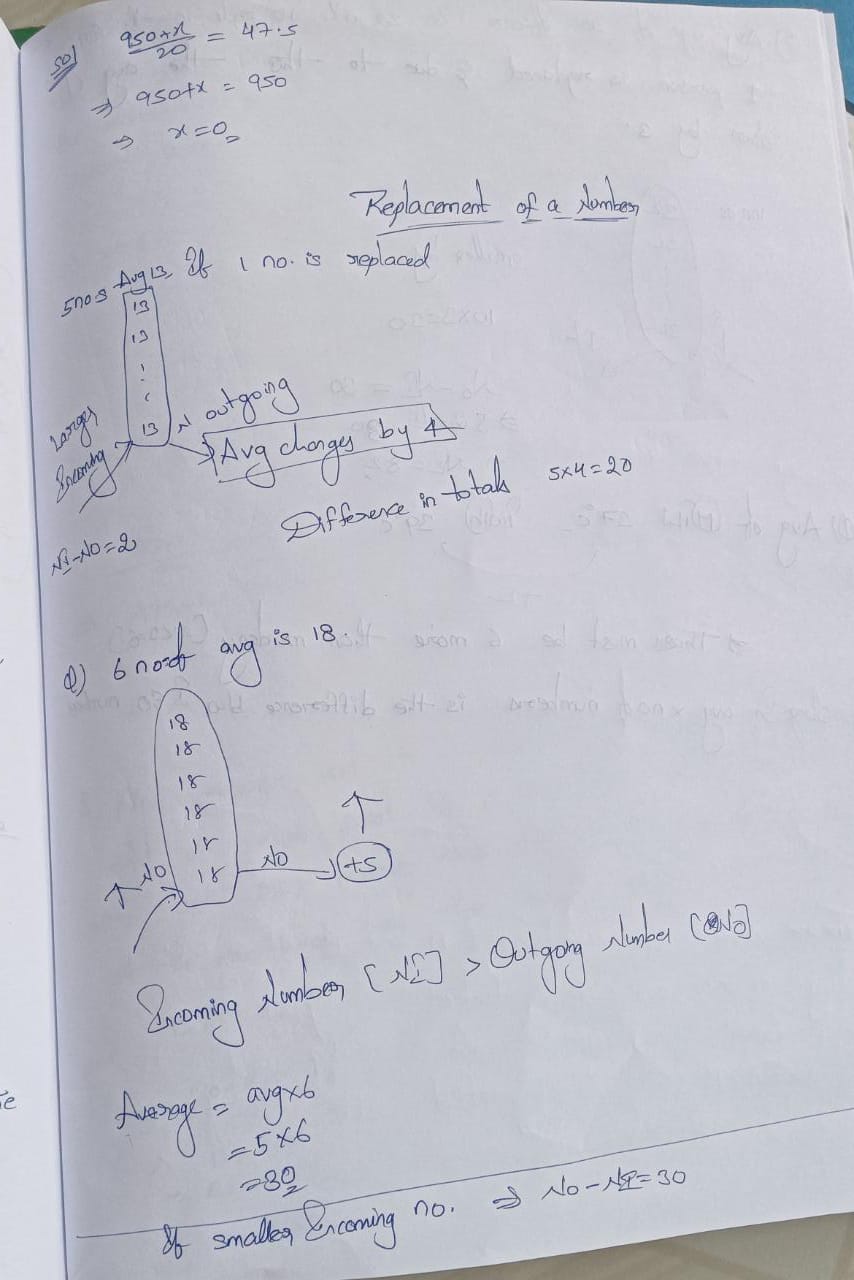 sol 950+x/20 = 47.5
⇒ 950+x = 950
⇒ x=0
Replacement of a Number
5nos Avg 13 If 1 no. is replaced
13
13
13
outgoing
Larger
Incoming
Avg changes by 4
Difference in totals 5x4=20
NI-NO=2
Q) 6 no.of avg is 18.
18
18
18
18
18
18
NO NO +5
Incoming Number [NI] > Outgong Number [NO]
Average = avgx6
=5x6
=30
If smaller Incoming no. ⇒ NO-NI=30